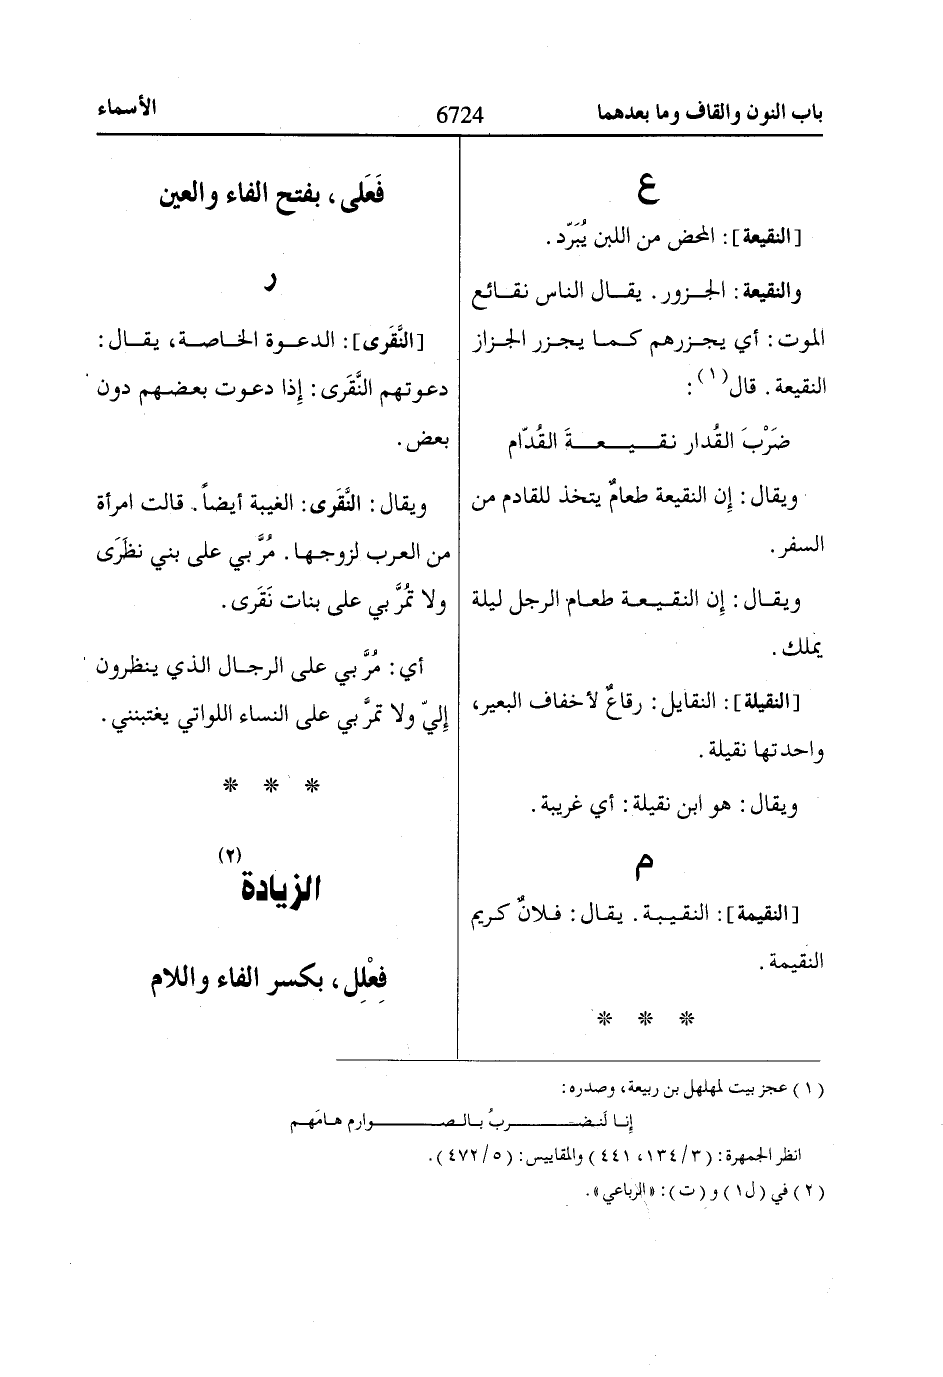 باب النون والقاف وما بعدهما 6724 الأسماء
ع
[النقيعة]: المحض من اللبن يُبَرّد.
والنقيعة: الجزور. يقال الناس نقائع
الموت: أي يجزرهم كما يجزر الجزاز
النقيعة. قال(١):
ضَرْبَ القُدار نقيعةَ القُدّام
ويقال: إن النقيعة طعامٌ يتخذ للقادم من
السفر.
ويقال: إن النقيعة طعام الرجل ليلة
يملك.
[النقيلة]: النقايل: رقاعٌ لأخفاف البعير،
واحدتها نقيلة.
ويقال: هو ابن نقيلة: أي غريبة.
م
[النقيمة]: النقيبة. يقال: فلانٌ كريم
النقيمة.
* * *
فَعَلى، بفتح الفاء والعين
ر
[النَّقَرى]: الدعوة الخاصة، يقال:
دعوتهم النَّقَرى: إذا دعوت بعضهم دون
بعض.
ويقال: النَّقَرى: الغيبة أيضاً. قالت امرأة
من العرب لزوجها. مُرَّ بي على بني نظَرَى
ولا تمُرَّ بي على بنات نَقَرى.
أي: مُرَّ بي على الرجال الذي ينظرون
إليّ ولا تمرَّ بي على النساء اللواتي يغتبنني.
* * *
الزيادة(٢)
فِعْلِل، بكسر الفاء واللام
(١) عجز بيت لمهلهل بن ربيعة، وصدره:
إنا لَنضربُ بالصوارم هامَهم
انظر الجمهرة: (٣/١٣٤، ٤٤١) والمقاييس: (٥/٤٧٢).
(٢) في (ل١) و(ت): «الرباعي».